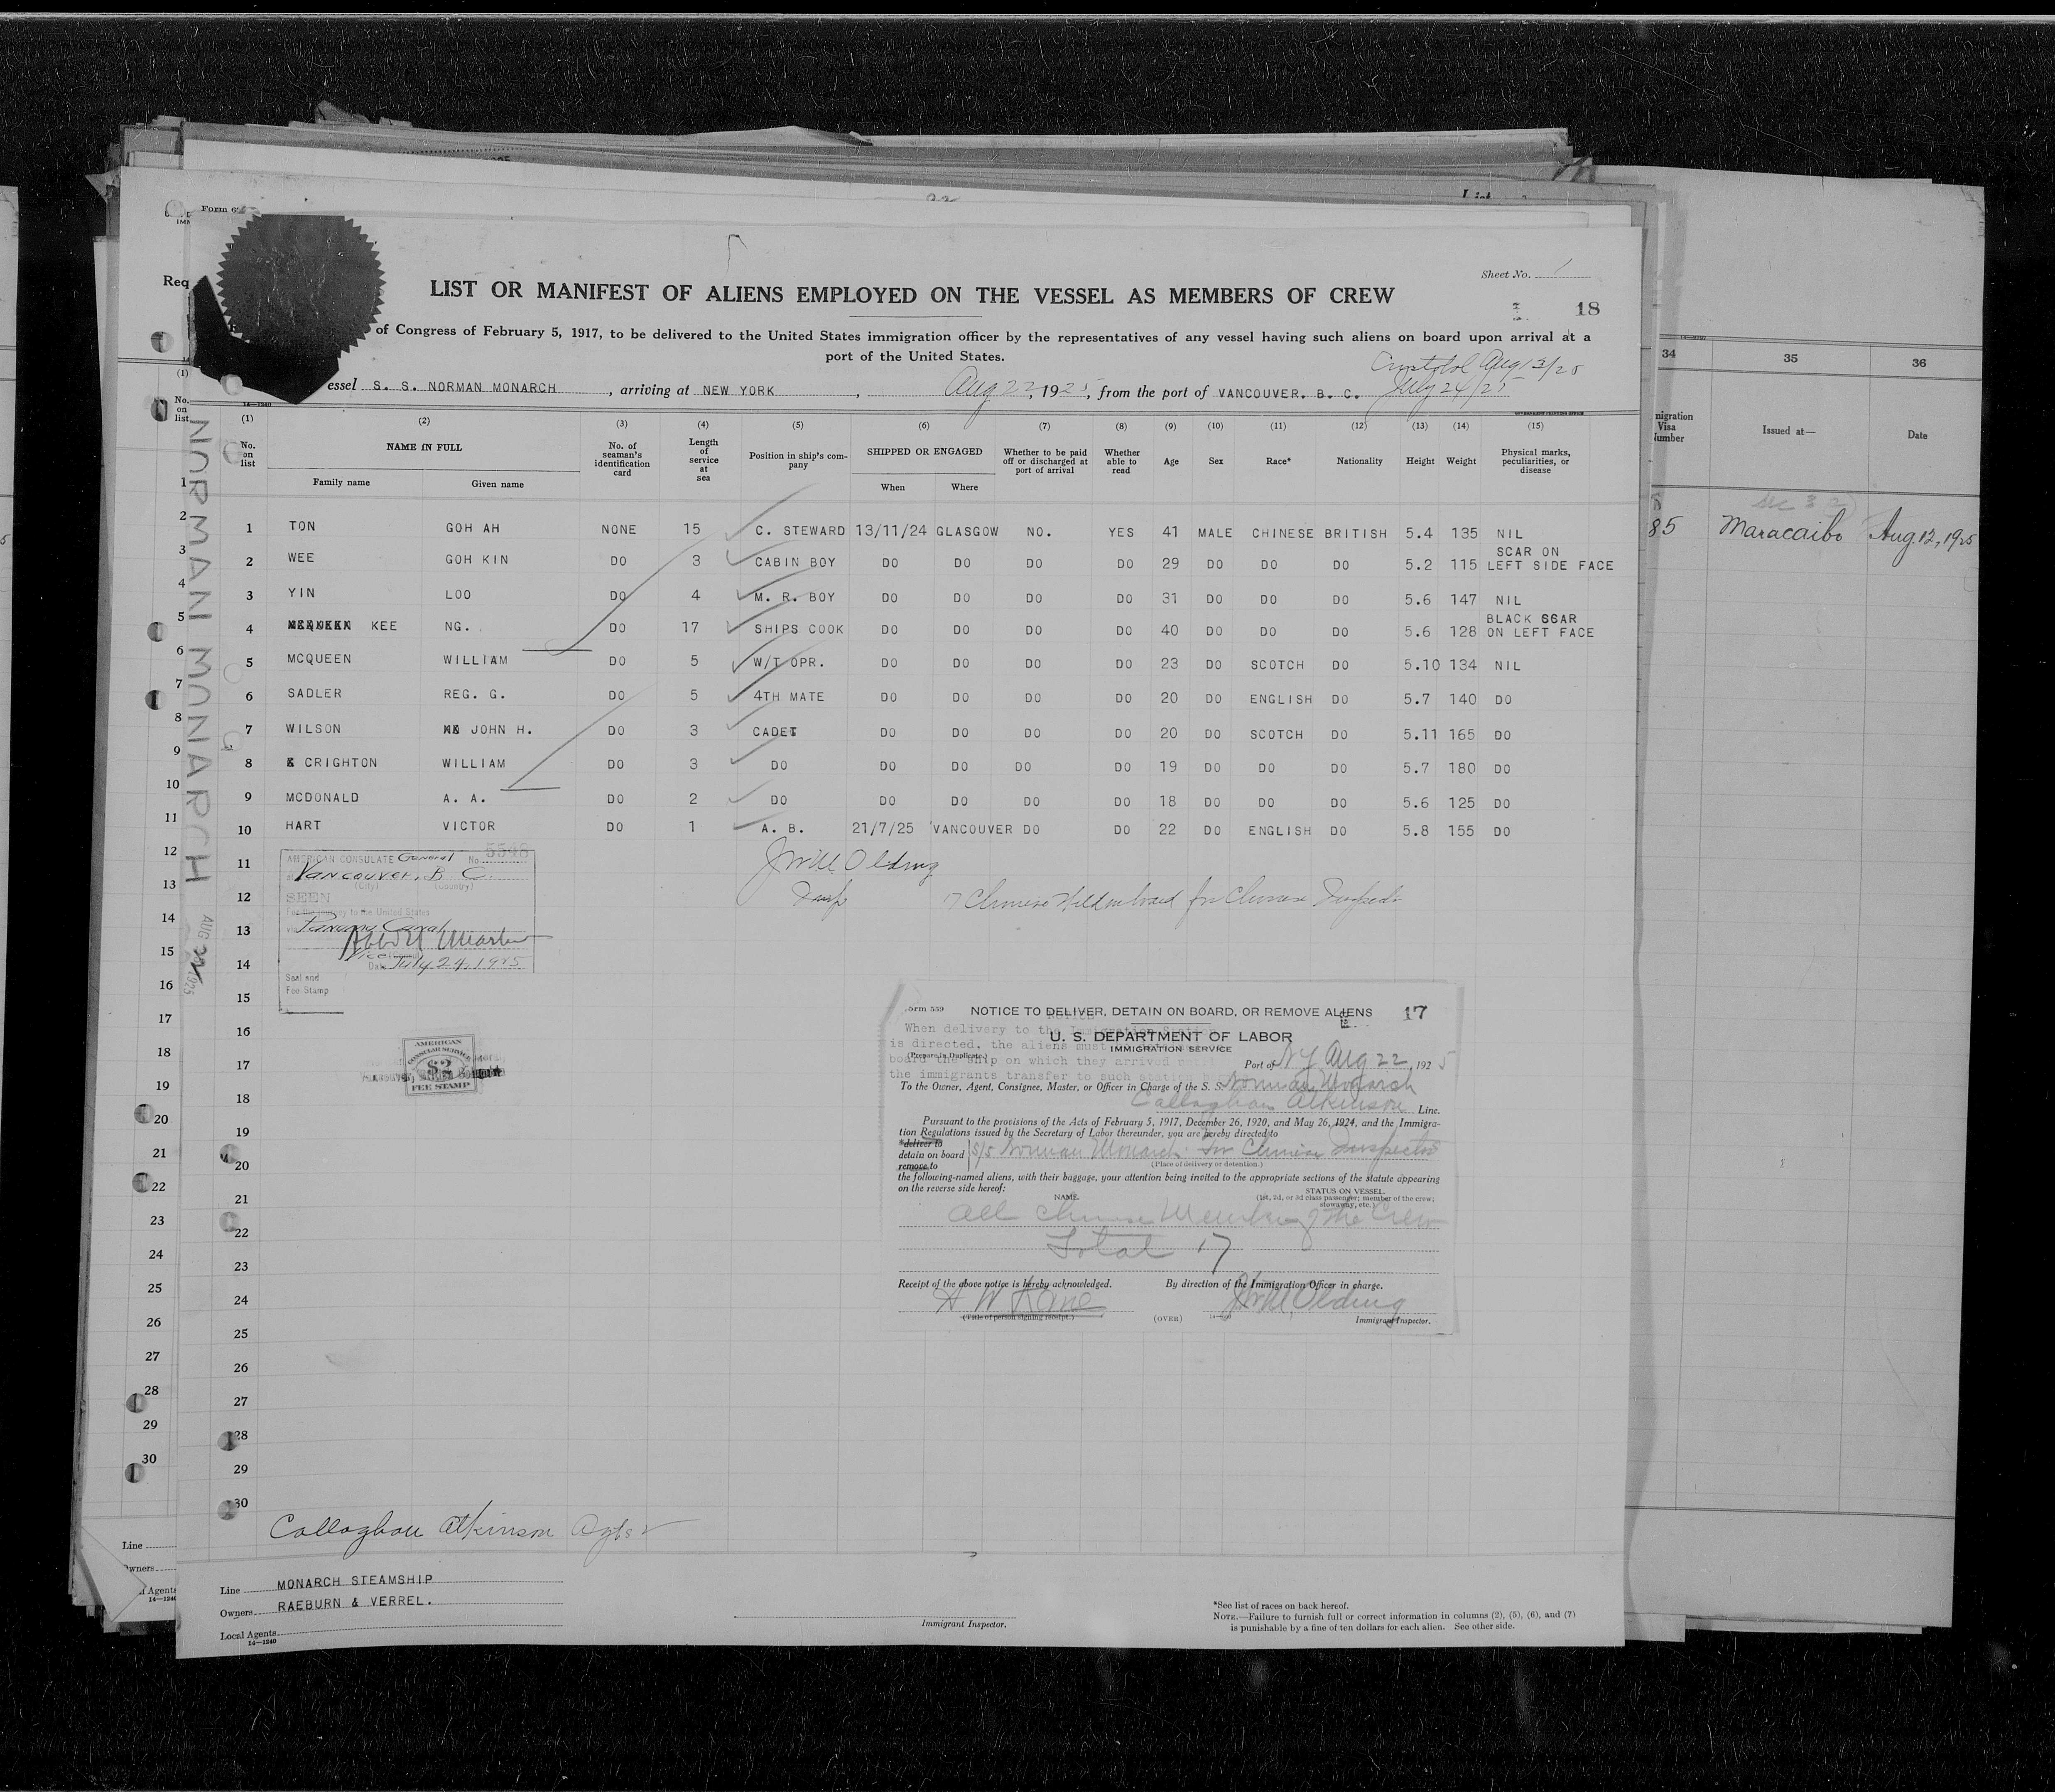 Form
Sheet No. 1
LIST OR MANIFEST OF ALIENS EMPLOYED ON THE VESSEL AS MEMBERS OF CREW
18
Req
of Congress of February 5, 1917, to be delivered to the United States immigration officer by the representatives of any vessel having such aliens on board upon arrival at a
port of the United States.
Aug 13/25
essel S. S. NORMAN MONARCH, arriving at NEW YORK, Aug 22, 1925, from the port of VANCOUVER. B. C. July 24/25
14—1240
(1) (2) (3) (4) (5) (6) (7) (8) (9) (10) (11) (12) (13) (14) (15)
No. on list NAME IN FULL No. of seaman's identification card Length of service at sea Position in ship's company SHIPPED OR ENGAGED Whether to be paid off or discharged at port of arrival Whether able to read Age Sex Race* Nationality Height Weight Physical marks, peculiarities, or disease
Family name Given name When Where
1 TON GOH AH NONE 15 C. STEWARD 13/11/24 GLASGOW NO. YES 41 MALE CHINESE BRITISH 5.4 135 NIL
2 WEE GOH KIN DO 3 CABIN BOY DO DO DO DO 29 DO DO DO 5.2 115 SCAR ON LEFT SIDE FACE
3 YIN LOO DO 4 M. R. BOY DO DO DO DO 31 DO DO DO 5.6 147 NIL
4 KEE NG. DO 17 SHIPS COOK DO DO DO DO 40 DO DO DO 5.6 128 BLACK SCAR ON LEFT FACE
5 MCQUEEN WILLIAM DO 5 W/T OPR. DO DO DO DO 23 DO SCOTCH DO 5.10 134 NIL
6 SADLER REG. G. DO 5 4TH MATE DO DO DO DO 20 DO ENGLISH DO 5.7 140 DO
7 WILSON JOHN H. DO 3 CADET DO DO DO DO 20 DO SCOTCH DO 5.11 165 DO
8 CRIGHTON WILLIAM DO 3 DO DO DO DO DO 19 DO DO DO 5.7 180 DO
9 MCDONALD A. A. DO 2 DO DO DO DO DO 18 DO DO DO 5.6 125 DO
10 HART VICTOR DO 1 A. B. 21/7/25 VANCOUVER DO DO 22 DO ENGLISH DO 5.8 155 DO
11
12
13
14
15
16
17
18
19
20
21
22
23
24
25
26
27
28
29
30
NORMAN MONARCH
AUG 22 1925
AMERICAN CONSULATE General No. 5548
Vancouver, B. C.
(City) (Country)
SEEN
For the journey to the United States
via Panama Canal
Vice
Date July 24, 1925
Seal and
Fee Stamp
AMERICAN
CONSULAR SERVICE
$2
FEE STAMP
Olding
Insp
17 Chinese Held on board for Chinese
Form 559 NOTICE TO DELIVER, DETAIN ON BOARD, OR REMOVE ALIENS 17
When delivery to the Immigration Station
is directed, the aliens must
board the ship on which they arrived
the immigrants transfer to such
U. S. DEPARTMENT OF LABOR
IMMIGRATION SERVICE
(Prepare in Duplicate.)
Port of N Y Aug 22, 1925
To the Owner, Agent, Consignee, Master, or Officer in Charge of the S. S. Norman Monarch
Callaghan Atkinson Line.
Pursuant to the provisions of the Acts of February 5, 1917, December 26, 1920, and May 26, 1924, and the Immigra-
tion Regulations issued by the Secretary of Labor thereunder, you are hereby directed to
*deliver to
detain on board S/S Norman Monarch for Chinese Inspector
remove to
(Place of delivery or detention.)
the following-named aliens, with their baggage, your attention being invited to the appropriate sections of the statute appearing
on the reverse side hereof:
NAME. STATUS ON VESSEL.
(1st, 2d, or 3d class passenger; member of the crew;
stowaway, etc.)
All Chinese Members of the Crew
Total 17
Receipt of the above notice is hereby acknowledged. By direction of the Immigration Officer in charge.
H W Kane Olding
(Title of person signing receipt.) (OVER) Immigrant Inspector.
Callaghan Atkinson Agts
Line MONARCH STEAMSHIP
Owners RAEBURN & VERREL.
Local Agents
14—1240
Immigrant Inspector.
*See list of races on back hereof.
NOTE.—Failure to furnish full or correct information in columns (2), (5), (6), and (7)
is punishable by a fine of ten dollars for each alien. See other side.
34 35 36
migration Visa Number Issued at— Date
85 Maracaibo Aug. 12, 1925